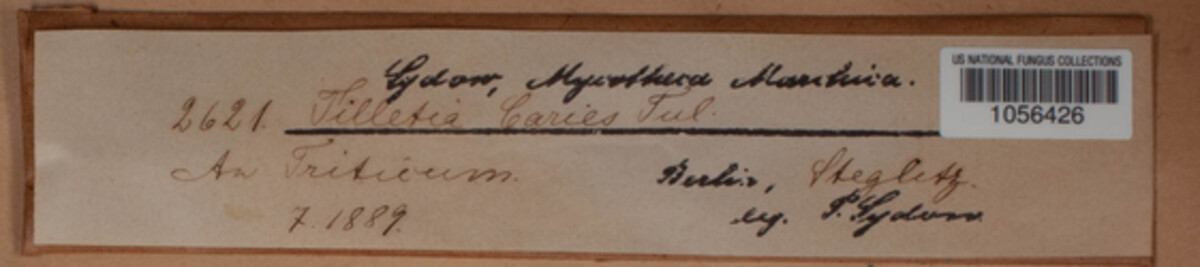 Sydow, Mycotheca Marchica.
US NATIONAL FUNGUS COLLECTIONS
1056426
2621. Tilletia Caries Tul.
An Triticum.
Berlin, Steglitz.
7. 1889.
leg. P. Sydow